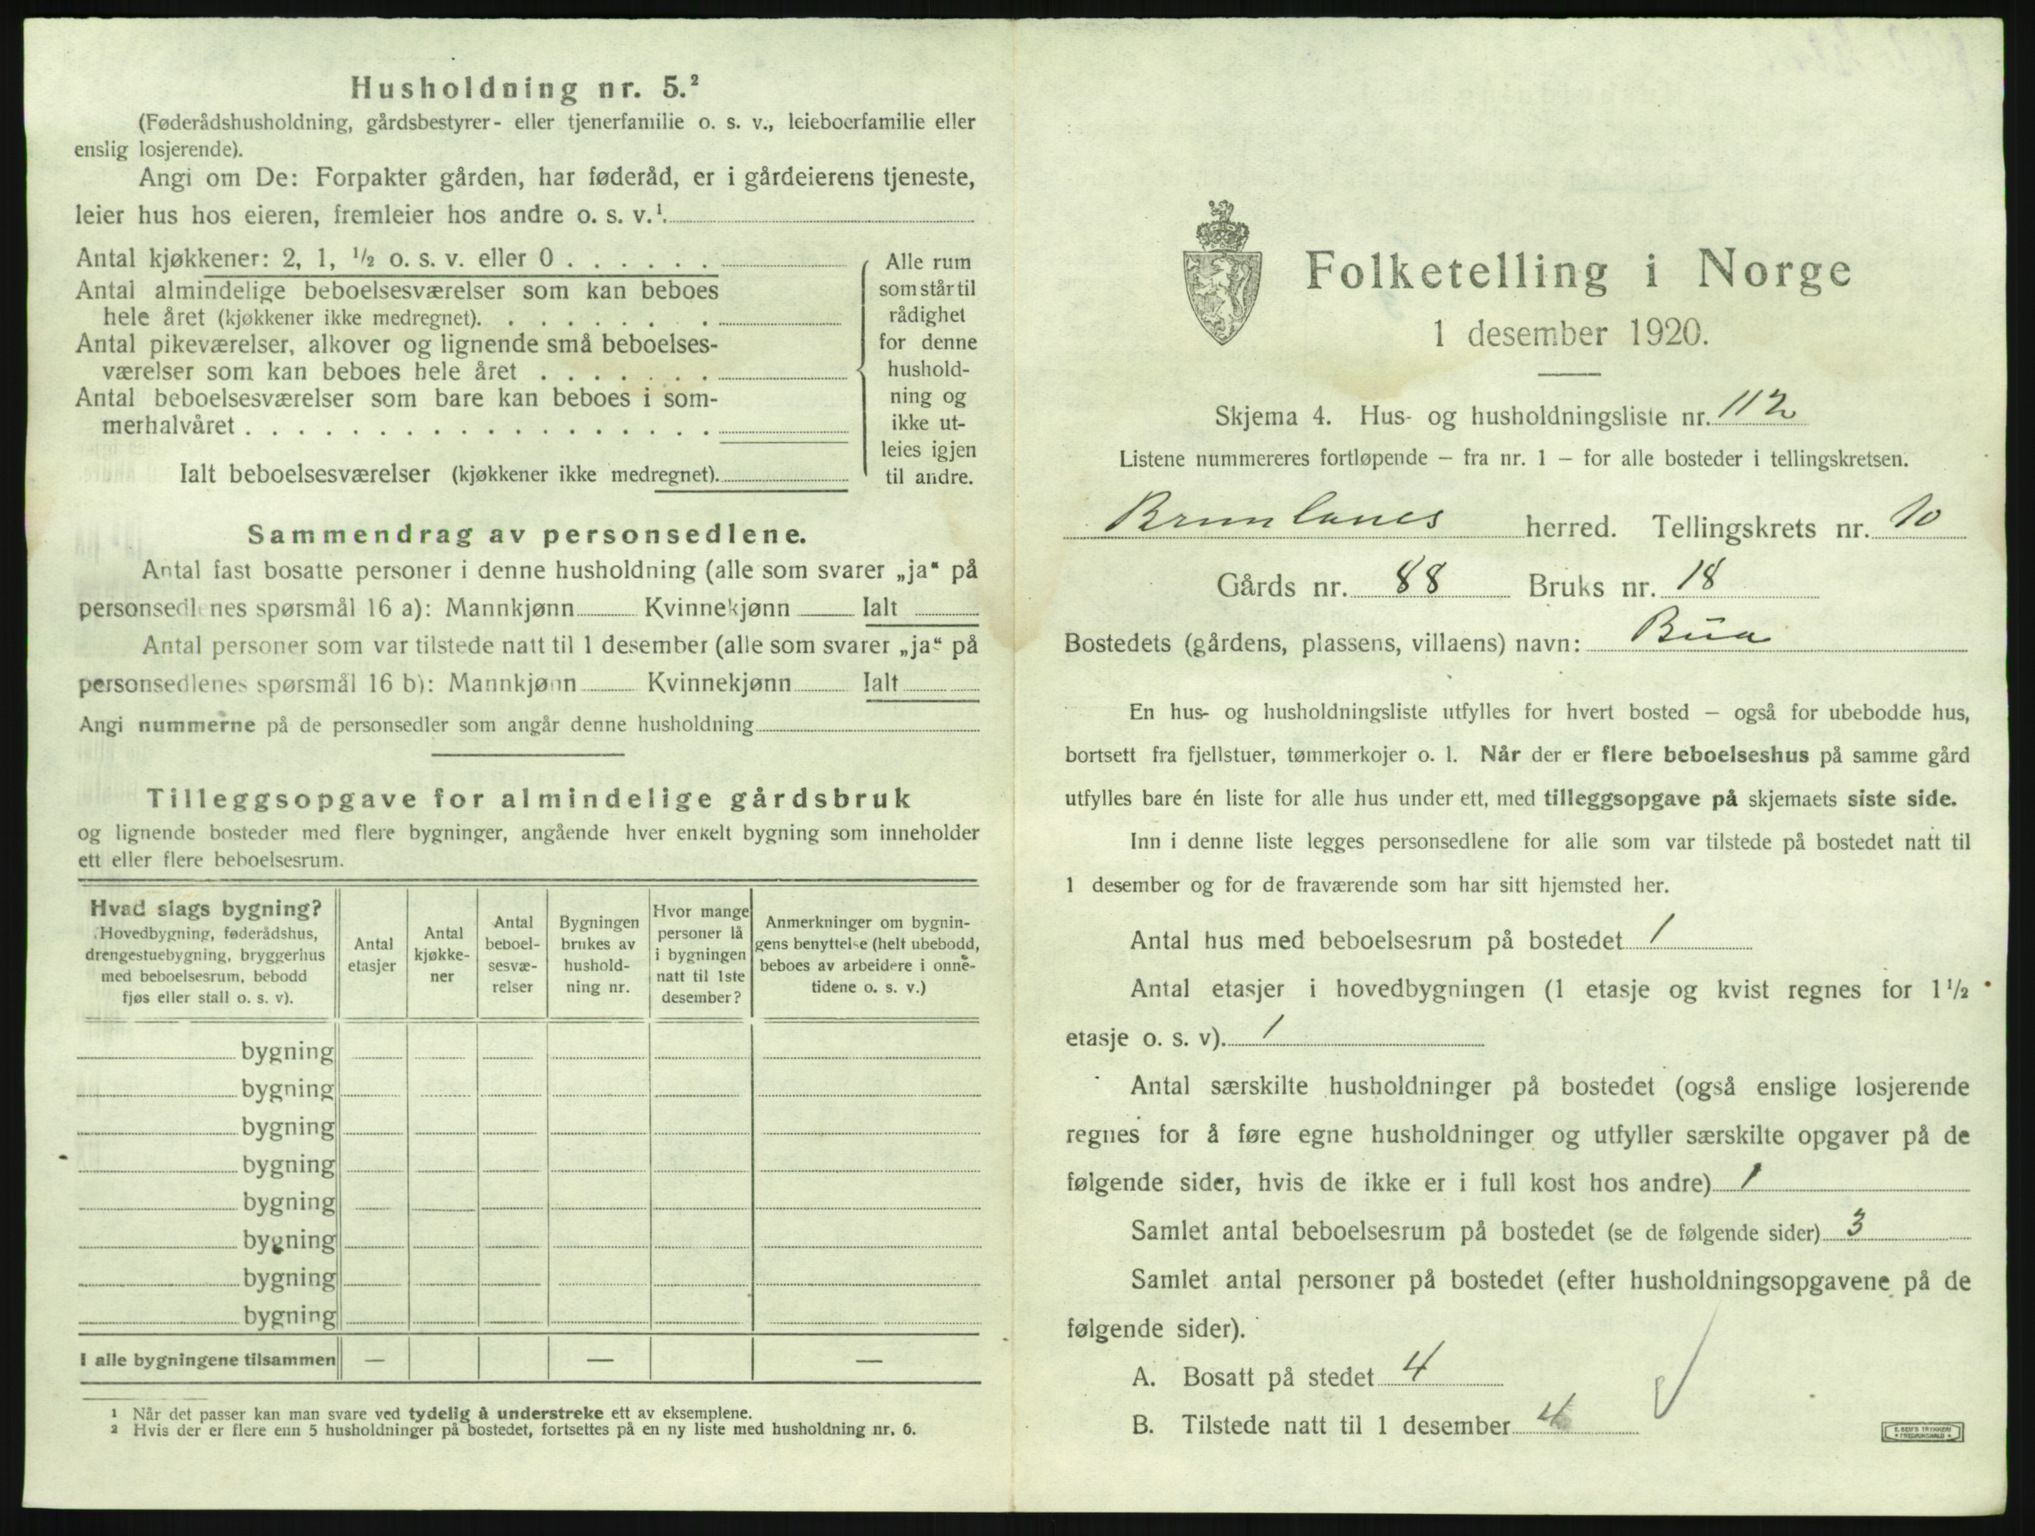 Husholdning nr. 5.²
(Føderådshusholdning, gårdsbestyrer- eller tjenerfamilie o. s. v., leieboerfamilie eller
enslig losjerende).
Angi om De: Forpakter gården, har føderåd, er i gårdeierens tjeneste,
leier hus hos eieren, fremleier hos andre o. s. v.¹
Antal kjøkkener: 2, 1, ½ o. s. v. eller 0 . . . . . .
Antal almindelige beboelsesværelser som kan beboes
hele året (kjøkkener ikke medregnet). . . . . . . .
Antal pikeværelser, alkover og lignende små beboelses-
værelser som kan beboes hele året . . . . . . .
Antal beboelsesværelser som bare kan beboes i som-
merhalvåret . . . . . . . . . . . . . . . . . .
Ialt beboelsesværelser (kjøkkener ikke medregnet).
Alle rum
som står til
rådighet
for denne
hushold-
ning og
ikke ut-
leies igjen
til andre.
Sammendrag av personsedlene.
Antal fast bosatte personer i denne husholdning (alle som svarer „ja“ på
personsedlenes spørsmål 16 a): Mannkjønn Kvinnekjønn Ialt
Antal personer som var tilstede natt til 1 desember (alle som svarer „ja“ på
personsedlenes spørsmål 16 b): Mannkjønn Kvinnekjønn Ialt
Angi nummerne på de personsedler som angår denne husholdning
Tilleggsopgave for almindelige gårdsbruk
og lignende bosteder med flere bygninger, angående hver enkelt bygning som inneholder
ett eller flere beboelsesrum.
Hvad slags bygning?
Hovedbygning, føderådshus,
drengestuebygning, bryggerhus
med beboelsesrum, bebodd
fjøs eller stall o. s. v).
Antal
etasjer
Antal
kjøkke-
ner
Antal
beboel-
sesvæ-
relser
Bygningen
brukes av
hushold-
ning nr.
Hvor mange
personer lå
i bygningen
natt til 1ste
desember?
Anmerkninger om bygnin-
gens benyttelse (helt ubebodd,
beboes av arbeidere i onne-
tidene o. s. v.)
bygning
bygning
bygning
bygning
bygning
bygning
bygning
bygning
I alle bygningene tilsammen — — —
¹ Når det passer kan man svare ved tydelig å understreke ett av eksemplene.
² Hvis der er flere enn 5 husholdninger på bostedet, fortsettes på en ny liste med husholdning nr. 6.
Folketelling i Norge
1 desember 1920.
Skjema 4. Hus- og husholdningsliste nr. 112
Listene nummereres fortløpende – fra nr. 1 – for alle bosteder i tellingskretsen.
Brunlanes herred. Tellingskrets nr. 10
Gårds nr. 88 Bruks nr. 18
Bostedets (gårdens, plassens, villaens) navn: Bua
En hus- og husholdningsliste utfylles for hvert bosted – også for ubebodde hus,
bortsett fra fjellstuer, tømmerkojer o. l. Når der er flere beboelseshus på samme gård
utfylles bare én liste for alle hus under ett, med tilleggsopgave på skjemaets siste side.
Inn i denne liste legges personsedlene for alle som var tilstede på bostedet natt til
1 desember og for de fraværende som har sitt hjemsted her.
Antal hus med beboelsesrum på bostedet 1
Antal etasjer i hovedbygningen (1 etasje og kvist regnes for 1½
etasje o. s. v). 1
Antal særskilte husholdninger på bostedet (også enslige losjerende
regnes for å føre egne husholdninger og utfyller særskilte opgaver på de
følgende sider, hvis de ikke er i full kost hos andre) 1
Samlet antal beboelsesrum på bostedet (se de følgende sider) 3
Samlet antal personer på bostedet (efter husholdningsopgavene på de
følgende sider).
A. Bosatt på stedet 4
B. Tilstede natt til 1 desember 4